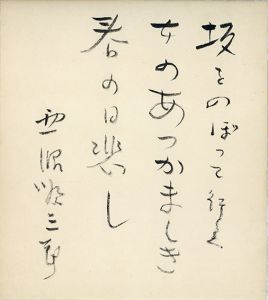 坂をのぼつて行く
女のあつかましき
春の日悲し
西脇順三郎